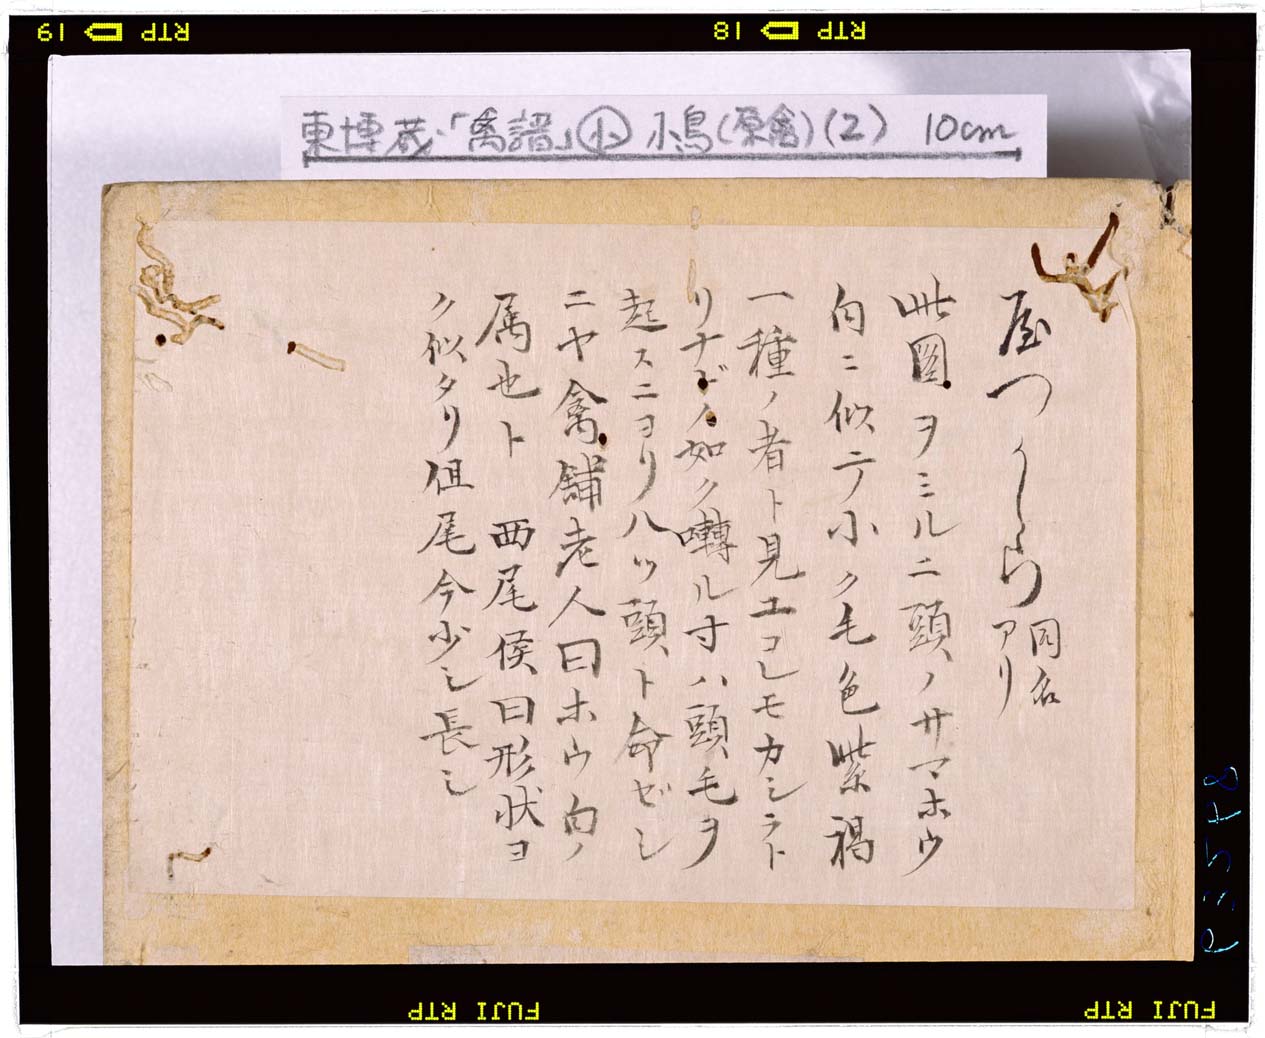 19 RTP
18 RTP
東博蔵「禽譜」小 小鳥(原禽)(2) 10cm
屋つかしら 同名アリ
此圖ヲミルニ頭ノサマホウ
白ニ似テ小ク毛色紫褐
一種ノ者ト見エコレモカシラト
リナドノ如ク囀ル寸ハ頭毛ヲ
起スニヨリ八ツ頭ト命ゼシ
ニヤ禽舗老人曰ホウ白ノ
属也ト 西尾侯曰形状ヨ
ク似タリ但尾今少シ長シ
FUJI RTP
FUJI RTP